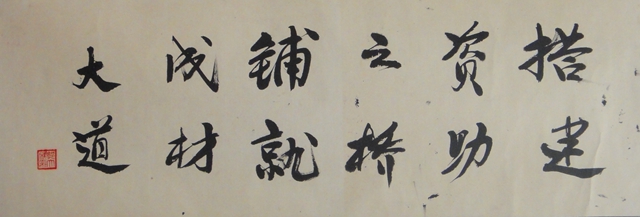 搭建
资助
之桥
铺就
成材
大道